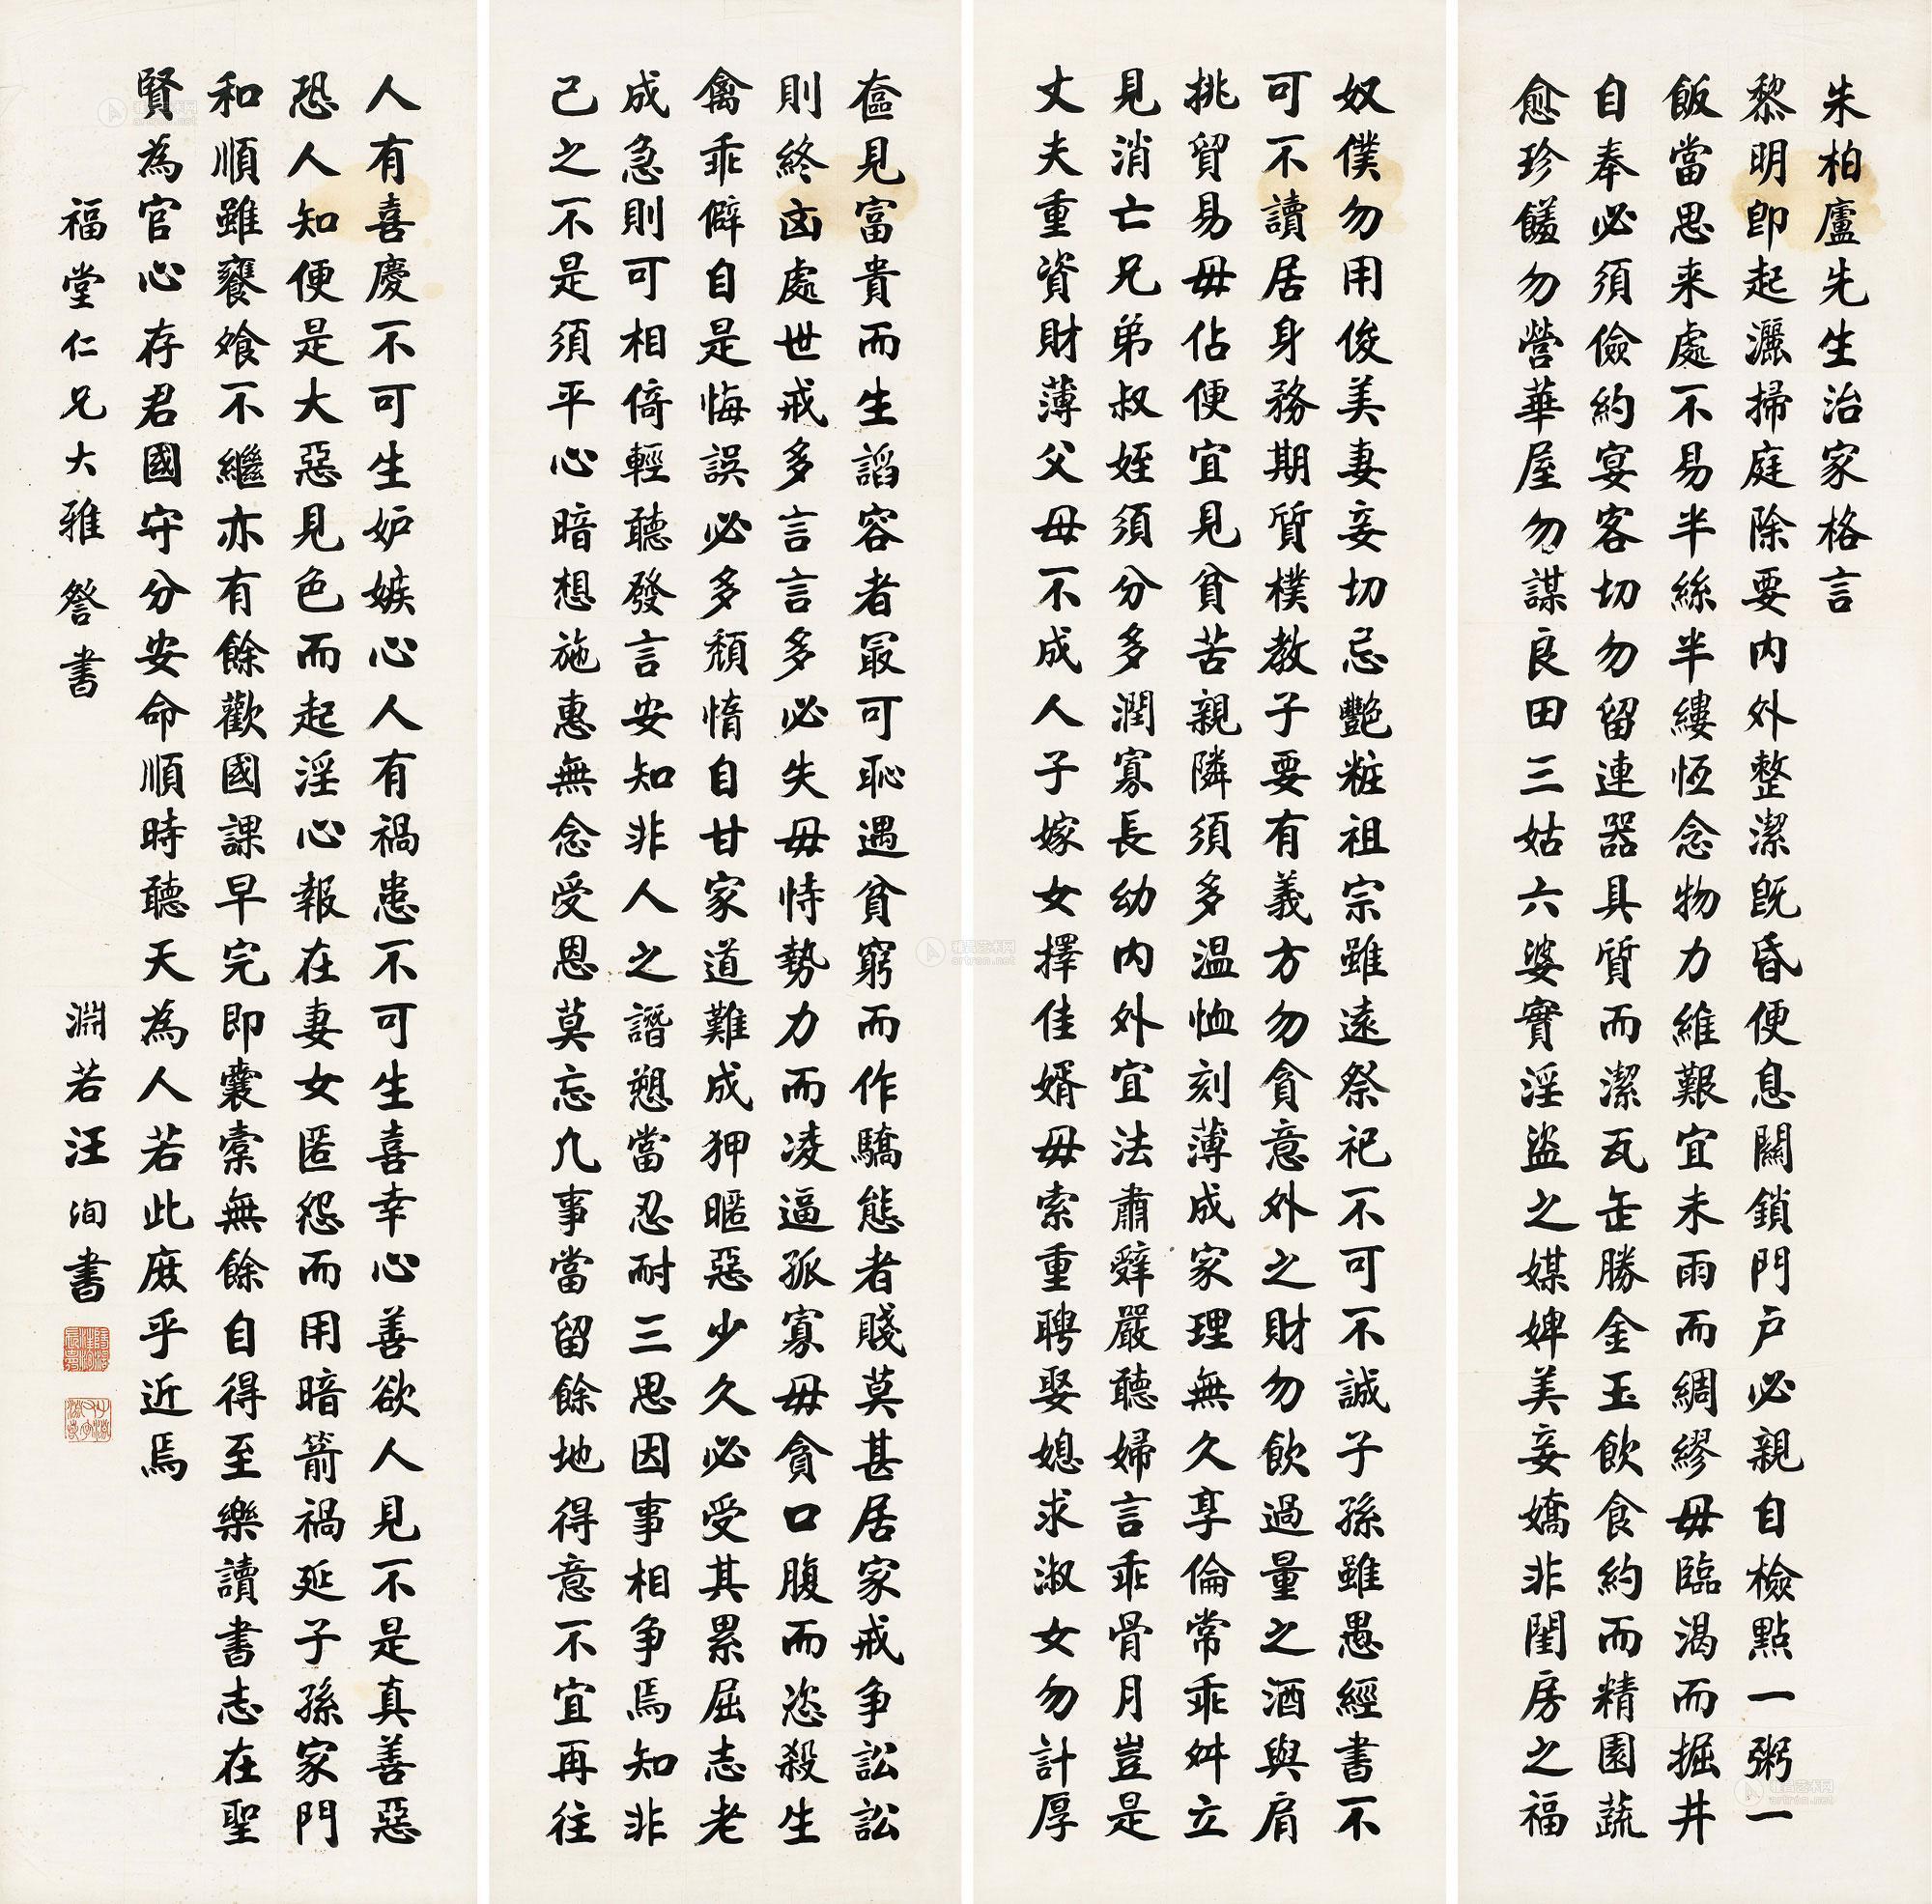 朱柏廬先生治家格言
黎明即起灑掃庭除要内外整潔既昏便息關鎖門户必親自檢點一粥一
飯當思来處不易半絲半縷恆念物力維艱宜未雨而綢繆毋臨渴而掘井
自奉必須儉約宴客切勿留連器具質而潔瓦缶勝金玉飲食約而精園蔬
愈珍饈勿營華屋勿謀良田三姑六婆實淫盜之媒婢美妾嬌非閨房之福
奴僕勿用俊美妻妾切忌艷粧祖宗雖遠祭祀不可不誠子孫雖愚經書不
可不讀居身務期質樸教子要有義方勿貪意外之財勿飲過量之酒與肩
挑貿易毋佔便宜見貧苦親隣須多温恤刻薄成家理無久享倫常乖舛立
見消亡兄弟叔姪須分多潤寡長幼内外宜法肅辭嚴聽婦言乖骨月豈是
丈夫重資財薄父母不成人子嫁女擇佳婿毋索重聘娶媳求淑女勿計厚
奩見富貴而生諂容者最可恥遇貧窮而作驕態者賤莫甚居家戒争訟訟
則終凶處世戒多言言多必失毋恃勢力而凌逼孤寡毋貪口腹而恣殺生
禽乖僻自是悔誤必多頹惰自甘家道難成狎暱惡少久必受其累屈志老
成急則可相倚輕聽發言安知非人之譖愬當忍耐三思因事相争焉知非
己之不是須平心暗想施惠無念受恩莫忘凡事當留餘地得意不宜再往
人有喜慶不可生妒嫉心人有禍患不可生喜幸心善欲人見不是真善惡
恐人知便是大惡見色而起淫心報在妻女匿怨而用暗箭禍延子孫家門
和順雖饔飧不繼亦有餘歡國課早完即囊橐無餘自得至樂讀書志在聖
賢為官心存君國守分安命順時聽天為人若此庶乎近焉
福堂仁兄大雅 詧書
淵若汪洵書